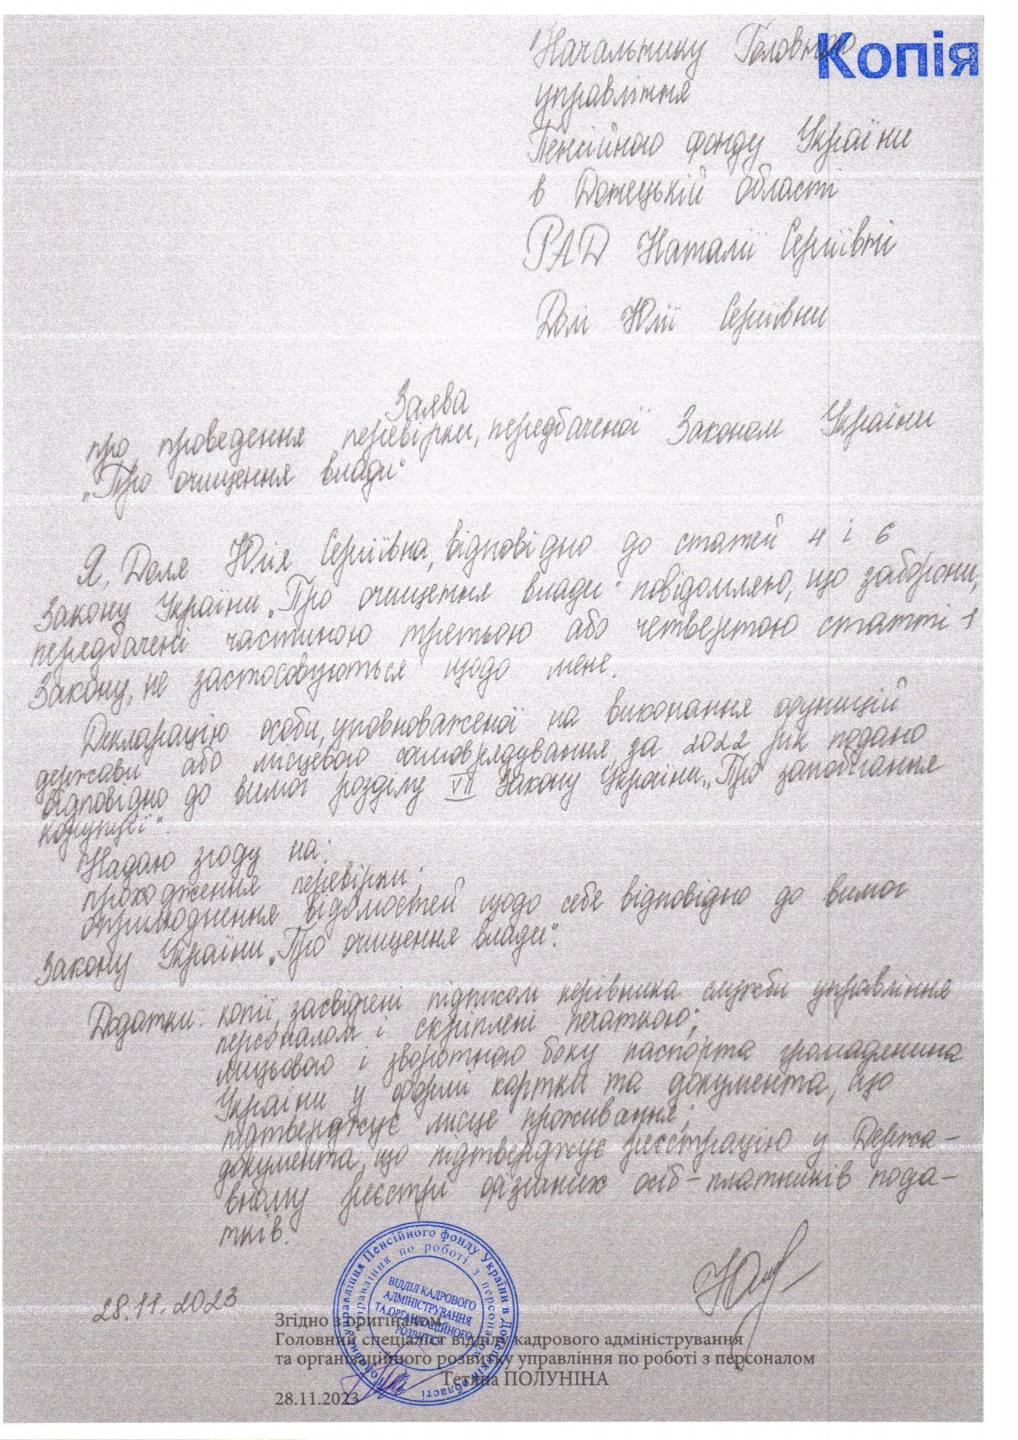 Копія
Начальнику Головного
управління
Пенсійного фонду України
в Донецькій області
РАД Наталії Сергіївні
Долі Юлії Сергіївни
Заява
про проведення перевірки, передбаченої Законом України
„Про очищення влади“
Я, Доля Юлія Сергіївна, відповідно до статей 4 і 6
Закону України „Про очищення влади“ повідомляю, що заборони,
передбачені частиною третьою або четвертою статті 1
Закону, не застосовуються щодо мене.
Декларацію особи, уповноваженої на виконання функцій
держави або місцевого самоврядування за 2022 рік подано
відповідно до вимог розділу VII Закону України „Про запобігання
корупції“.
Надаю згоду на:
проходження перевірки;
оприлюднення відомостей щодо себе відповідно до вимог
Закону України „Про очищення влади“.
Додатки: копії, засвідчені підписом керівника служби управління
персоналом і скріплені печаткою;
лицьового і зворотного боку паспорта громадянина
України у формі картки та документа, що
підтверджує місце проживання;
документа, що підтверджує реєстрацію у Держа-
вному реєстрі фізичних осіб-платників пода-
тків.
28.11.2023
ВІДДІЛ КАДРОВОГО
АДМІНІСТРУВАННЯ
ТА ОРГАНІЗАЦІЙНОГО
РОЗВИТКУ
Згідно з оригіналом
Головний спеціаліст відділу кадрового адміністрування
та організаційного розвитку управління по роботі з персоналом
Тетяна ПОЛУНІНА
28.11.2023